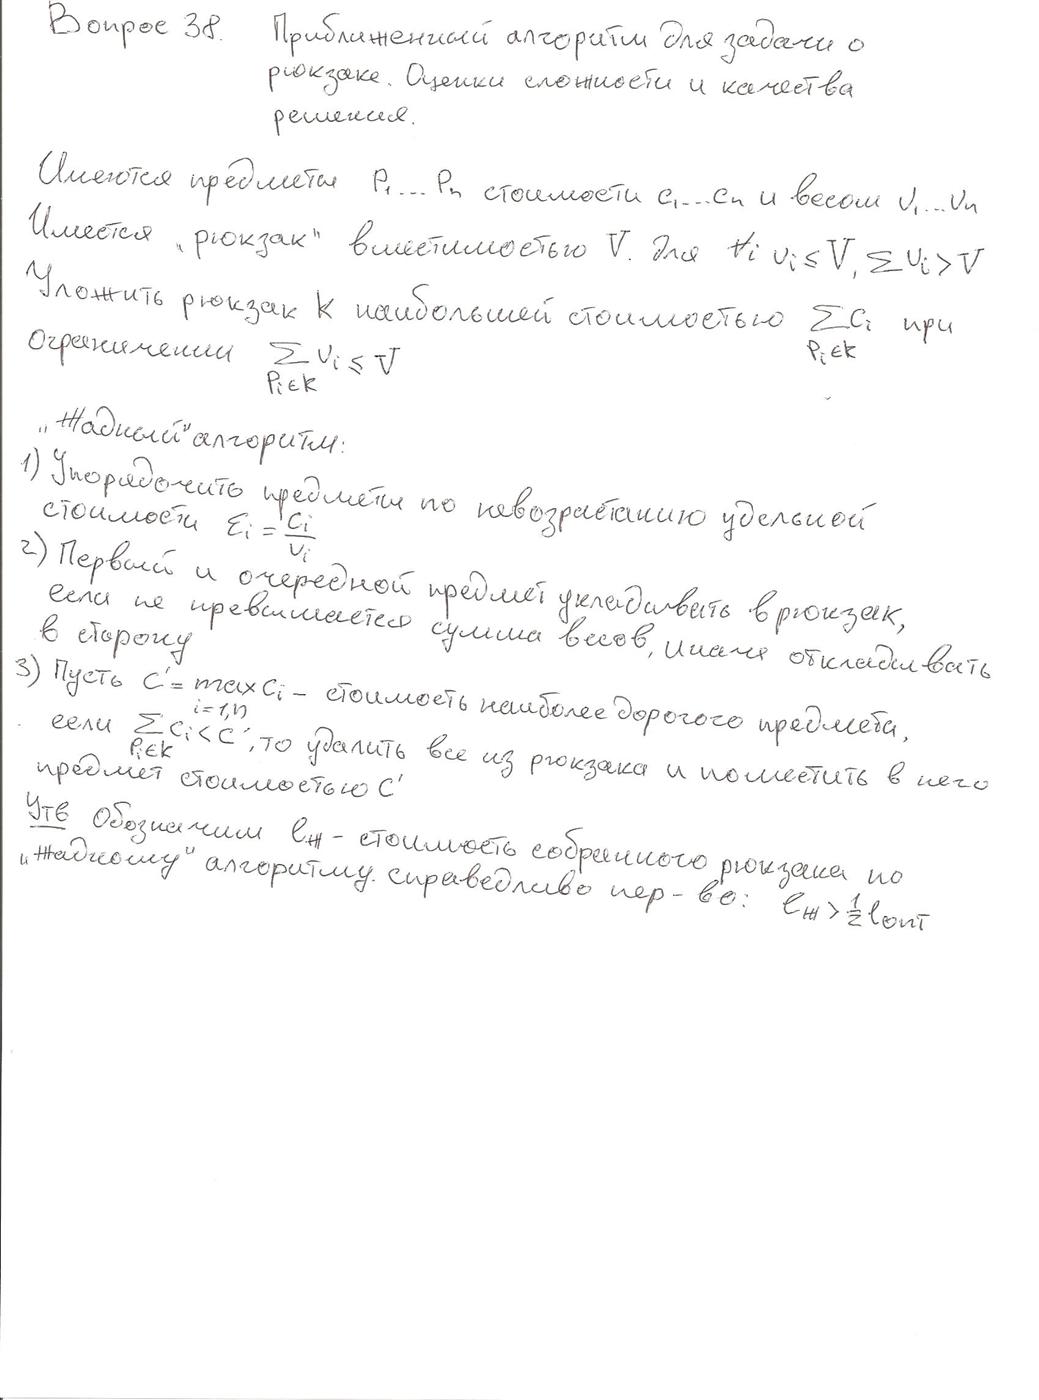 Вопрос 38. Приближенный алгоритм для задачи о
рюкзаке. Оценки сложности и качества
решения.
Имеются предметы P₁...Pₙ стоимости c₁...cₙ и весом v₁...vₙ
Имеется „рюкзак" вместимостью V. Для ∀i vᵢ ≤ V, ∑vᵢ > V
Уложить рюкзак K наибольшей стоимостью ∑cᵢ при
Pᵢ∈K
ограничении ∑vᵢ ≤ V
Pᵢ∈K
„Жадный" алгоритм:
1) Упорядочить предметы по невозрастанию удельной
стоимости εᵢ = cᵢ/vᵢ
2) Первый и очередной предмет укладывать в рюкзак,
если не превышается сумма весов, иначе откладывать
в сторону
3) Пусть C' = max cᵢ – стоимость наиболее дорогого предмета,
i=1,n
если ∑cᵢ < C', то удалить все из рюкзака и поместить в него
Pᵢ∈K
предмет стоимостью C'
Утв Обозначим lж – стоимость собранного рюкзака по
„Жадному" алгоритму. справедливо нер-во: lж > ½ lопт